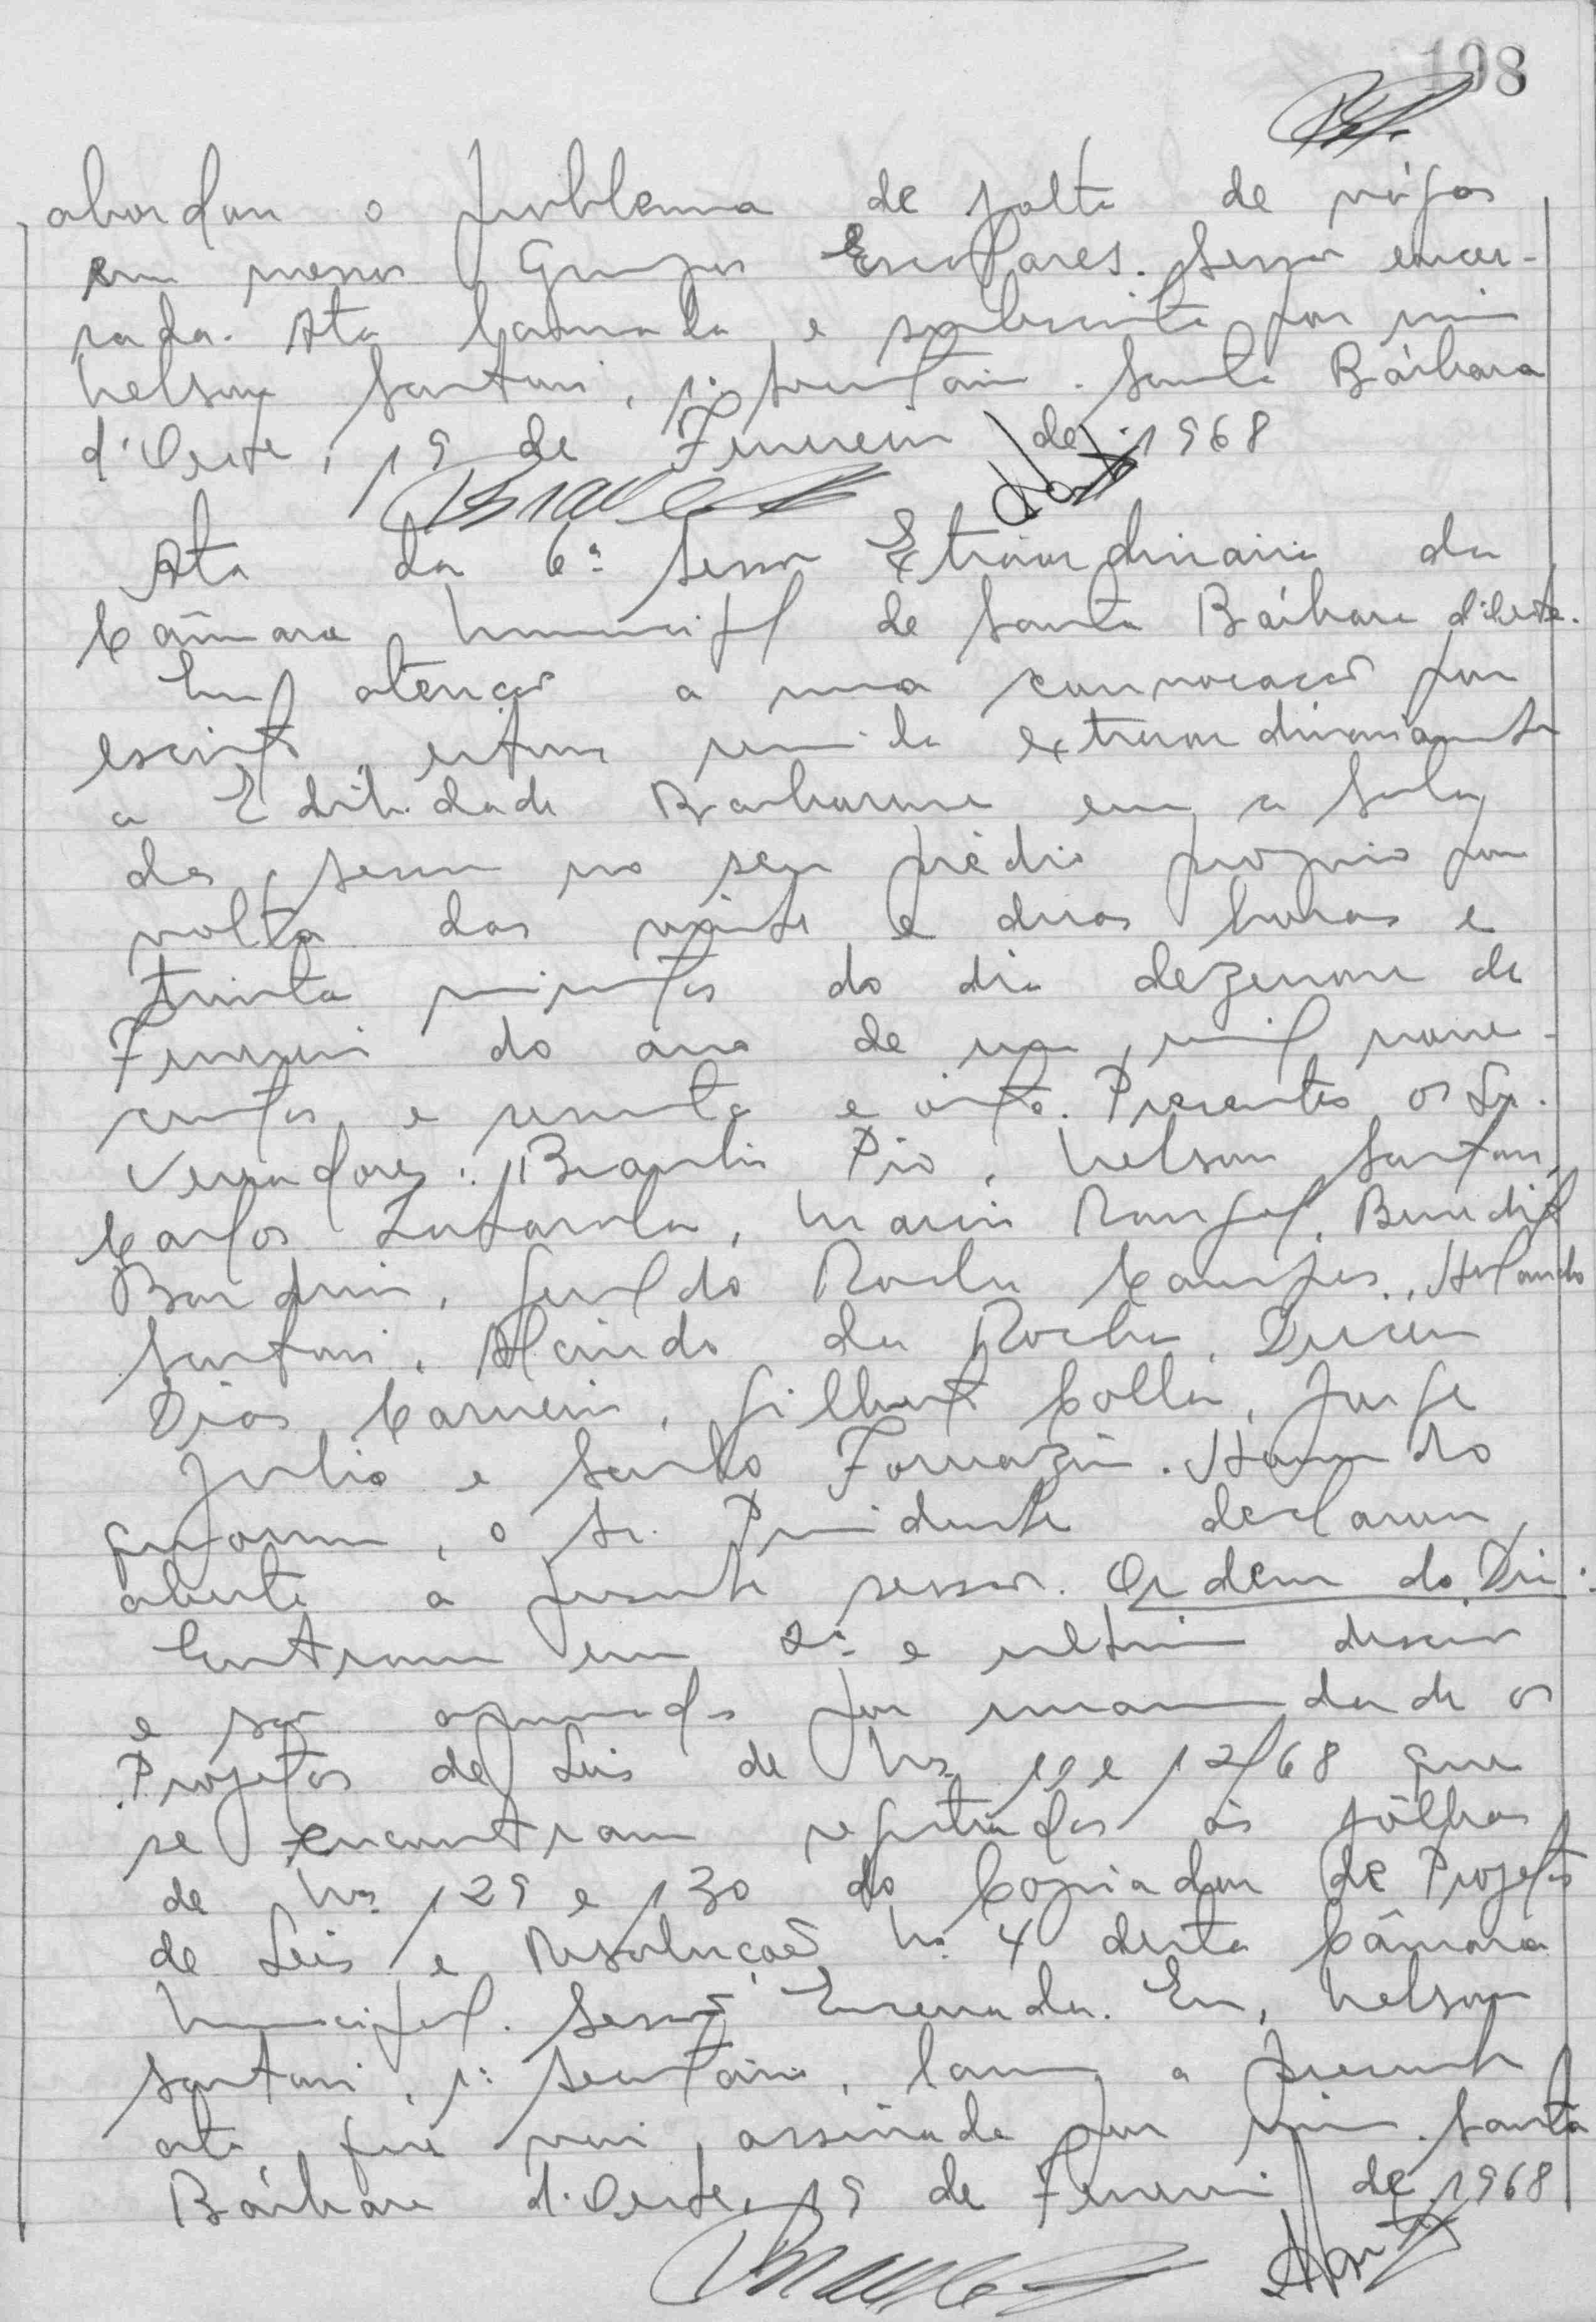 198
abordam o problema de falta de vágas
em nossos Grupos Escolares. Sessão encer-
rada. Ata lavrada e subscrita por mim
Nelson Santani, 1º secretário. Santa Bárbara
d'Oeste, 19 de Fevereiro de 1968
Ata da 6ª Sessão Extraordinária da
Câmara Municipal de Santa Bárbara d'Oeste.
Em atenção a uma convocação por
escrito, esteve reunida extraordinariamente
a Edilidade Barbarense em a sala
de sessões no seu prédio proprio por
volta das vinte e duas horas e
trinta minutos do dia dezenove de
Fevereiro do ano de um mil nove-
centos e sessenta e oito. Presentes os Srs.
Vereadores: Braulio Pio, Nelson Santani,
Carlos Mario Rangel, Benedito
Geraldo Rocha Campos,
Santani, Alcindo da Rocha, Dirceu
Dias Carneiro, Gilberto Colla, Jorge
Julio e Santo Fornazin. Havendo
quorum, o Sr. Presidente declarou
aberta a presente sessão. Ordem do Dia:
Entram em 2ª e ultima discussão
e são aprovados por unanimidade os
Projetos de Leis de Nos 10 e 12/68 que
se encontram registrados às fôlhas
de Nos 129 e 130 do Copiador de Projetos
de Leis e Resoluções No 4 desta Câmara
Municipal. Sessão Encerrada. Eu, Nelson
Santani, 1º secretário, lavrei a presente
ata que vai assinada por mim. Santa
Bárbara d'Oeste, 19 de Fevereiro de 1968